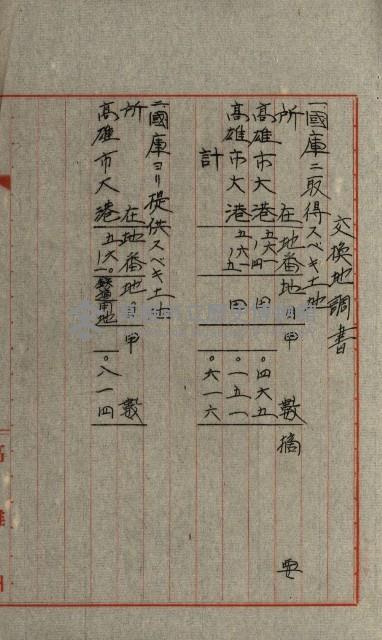 交換地調書
一、國庫ニ取得スベキ土地
所在地番 地目 甲數 摘要
高雄市大港 五六一ノ四 田 〇.四六五
高雄市大港 五六一ノ五 田 〇.一五一
計 〇.六一六
二、國庫ヨリ提供スベキ土地
所在地番 地目 甲數
高雄市大港 五六一〇 鉄道用地 一.八一四
高雄